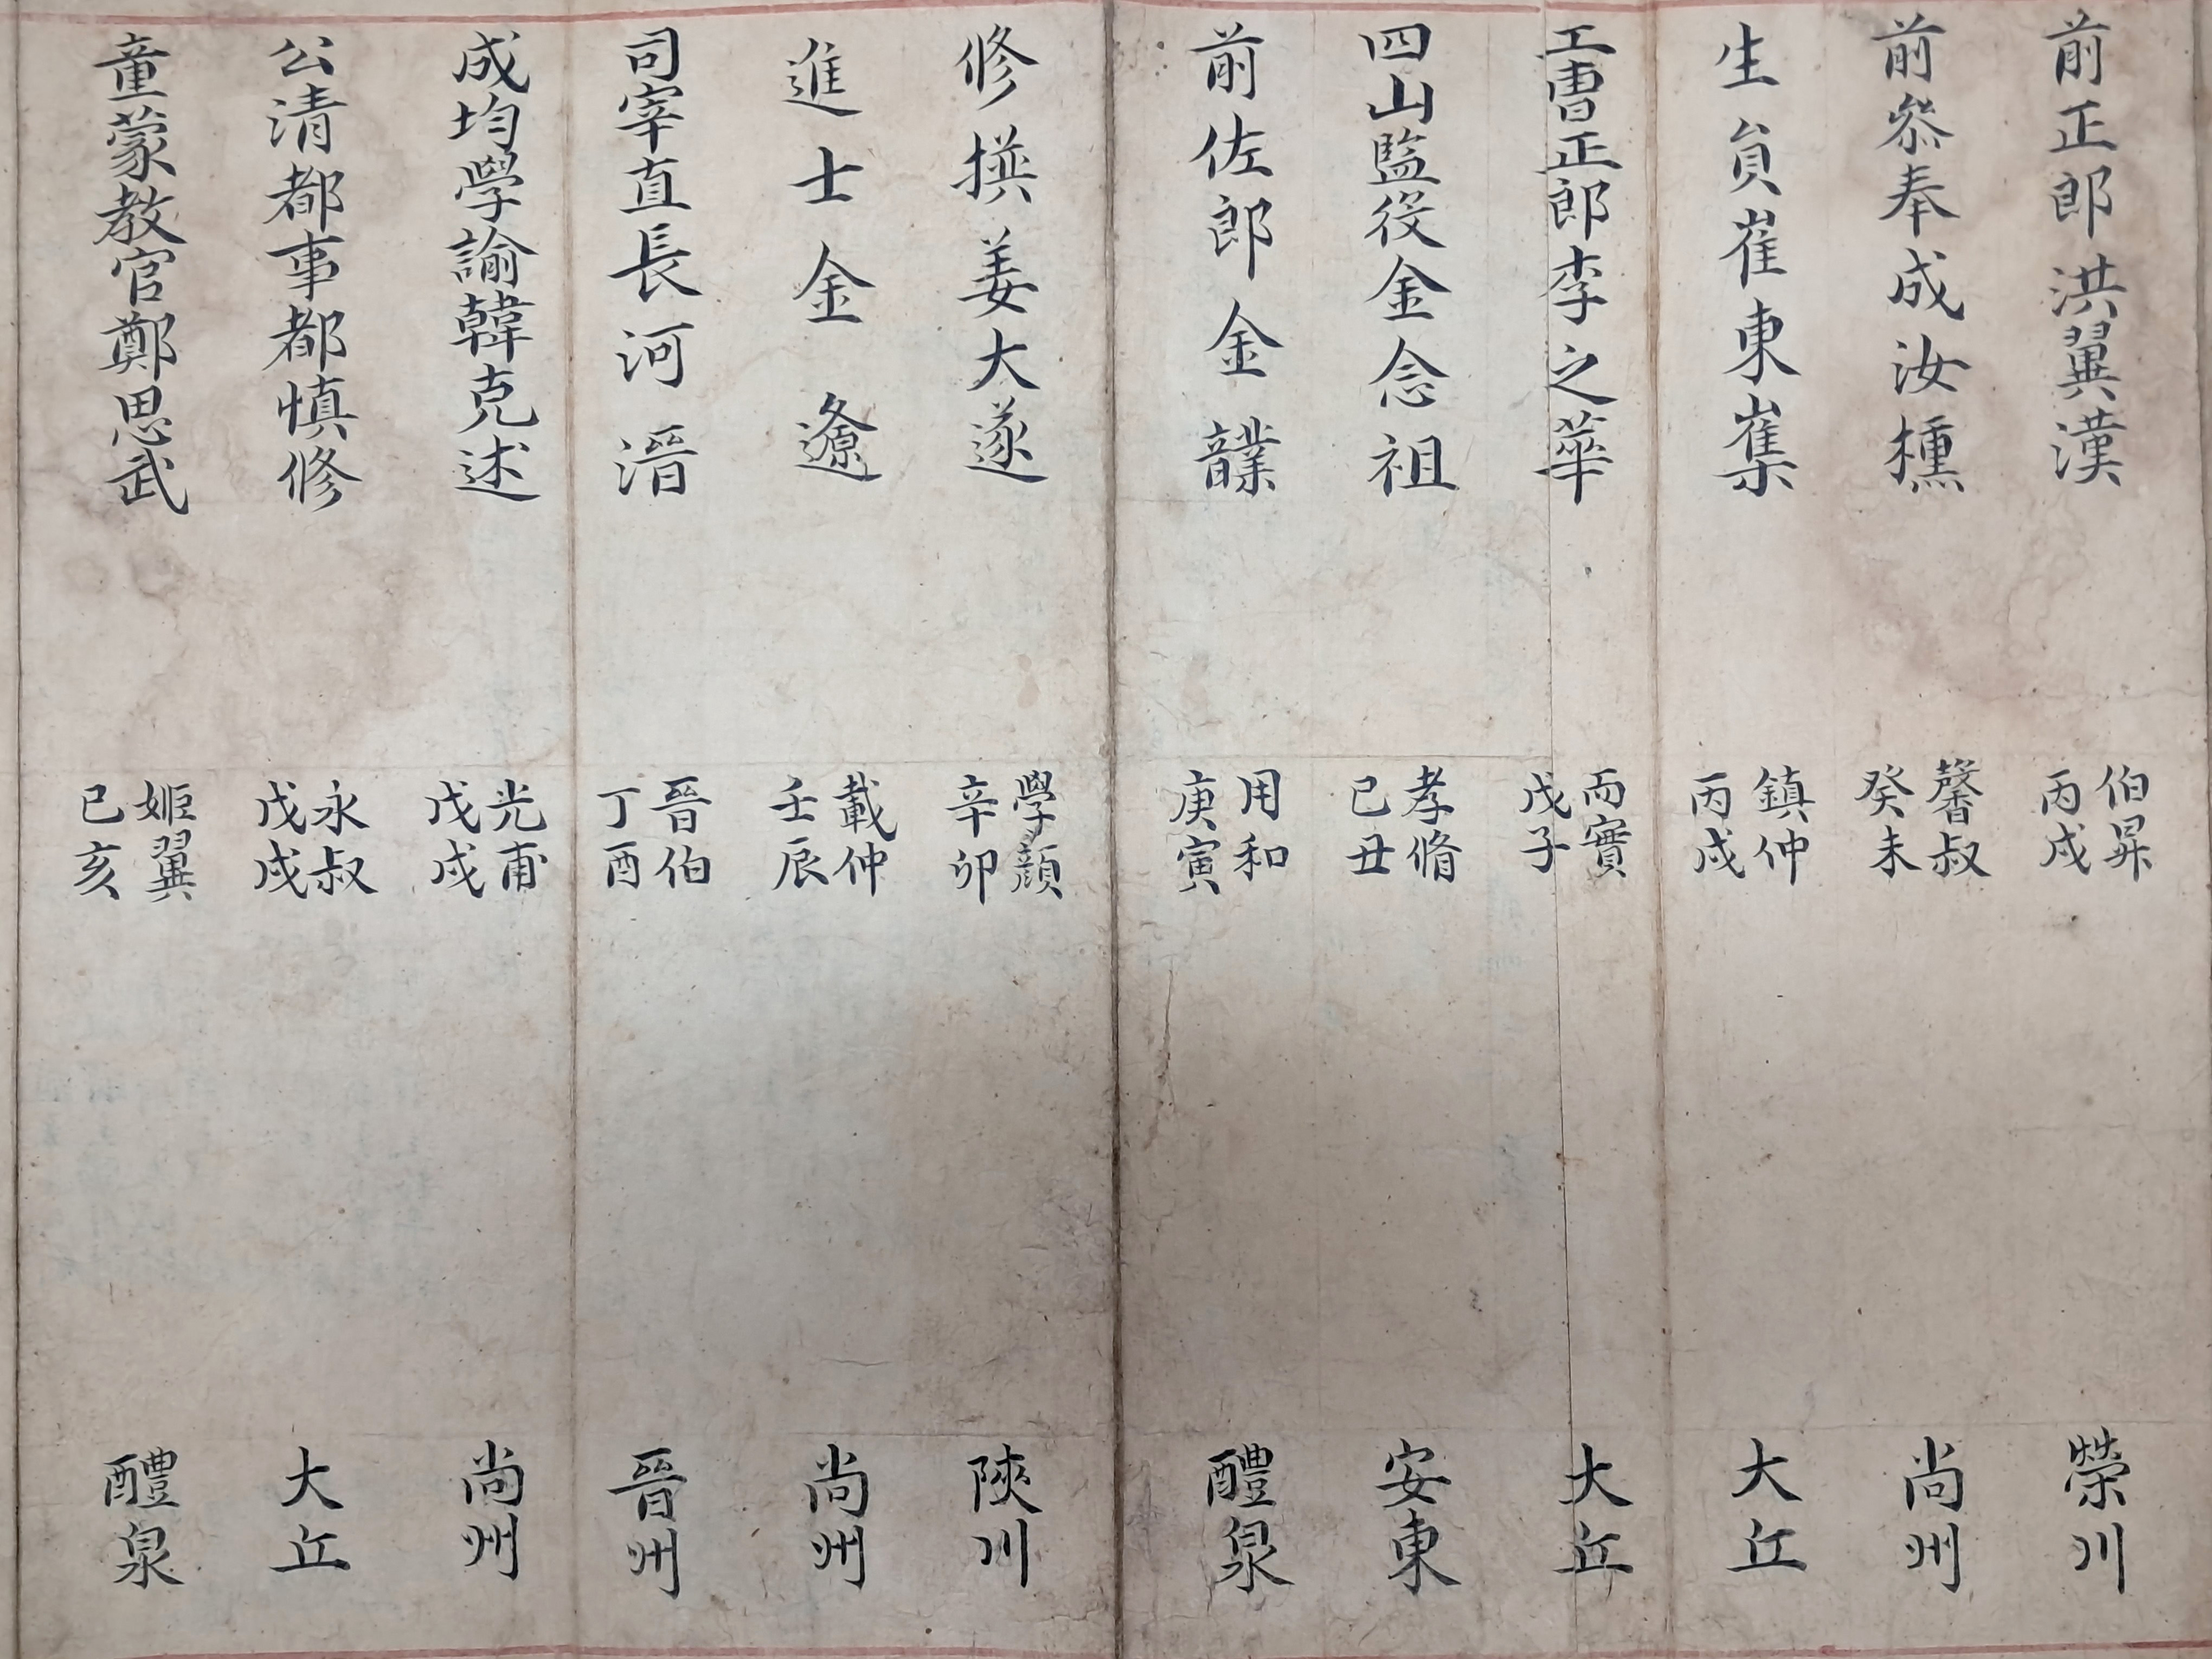 前正郎洪翼漢
伯昇
丙戌
榮川
前叅奉成汝櫄
馨叔
癸未
尙州
生員崔東㠍
鎭仲
丙戌
大丘
工曹正郎李之華
而實
戊子
大丘
四山監役金念祖
孝脩
己丑
安東
前佐郎金
用和
庚寅
醴泉
修撰姜大遂
學顔
辛卯
陜川
進士金
載仲
壬辰
尙州
司宰直長河溍
晉伯
丁酉
晉州
成均學諭韓克述
光甫
戊戌
尙州
公清都事都慎修
永叔
戊戌
大丘
童蒙教官鄭思武
姬翼
己亥
醴泉